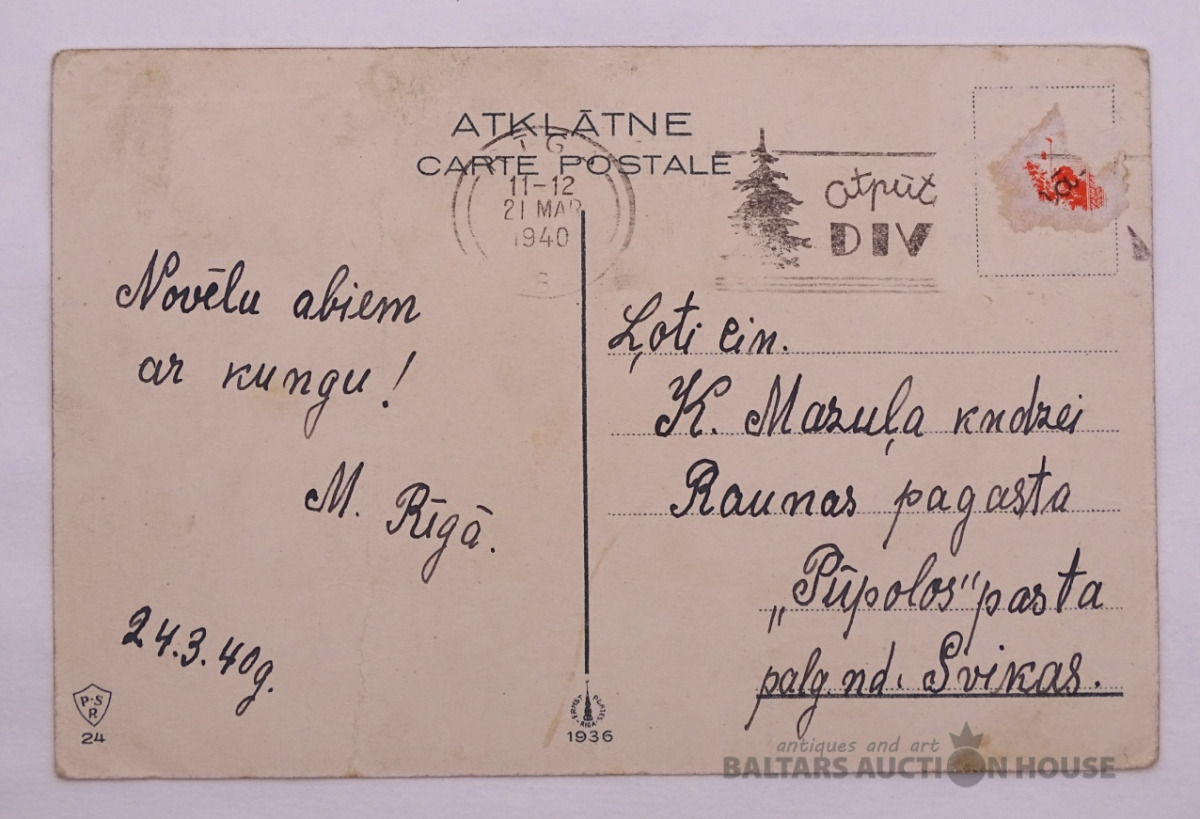 ATKLĀTNE
CARTE POSTALE
11-12
21 MAR
1940
atpūt
DIV
Novēlu abiem
ar kungu!
M. Rīgā.
24.3.40g.
Ļoti cin.
K. Mazuļa kndzei
Raunas pagasta
„Pūpolos“ pasta
palg. nd. Svikas.
P·S
R
24
ERNST PLATES
RIGA
1936
antiques and art
BALTARS AUCTION HOUSE